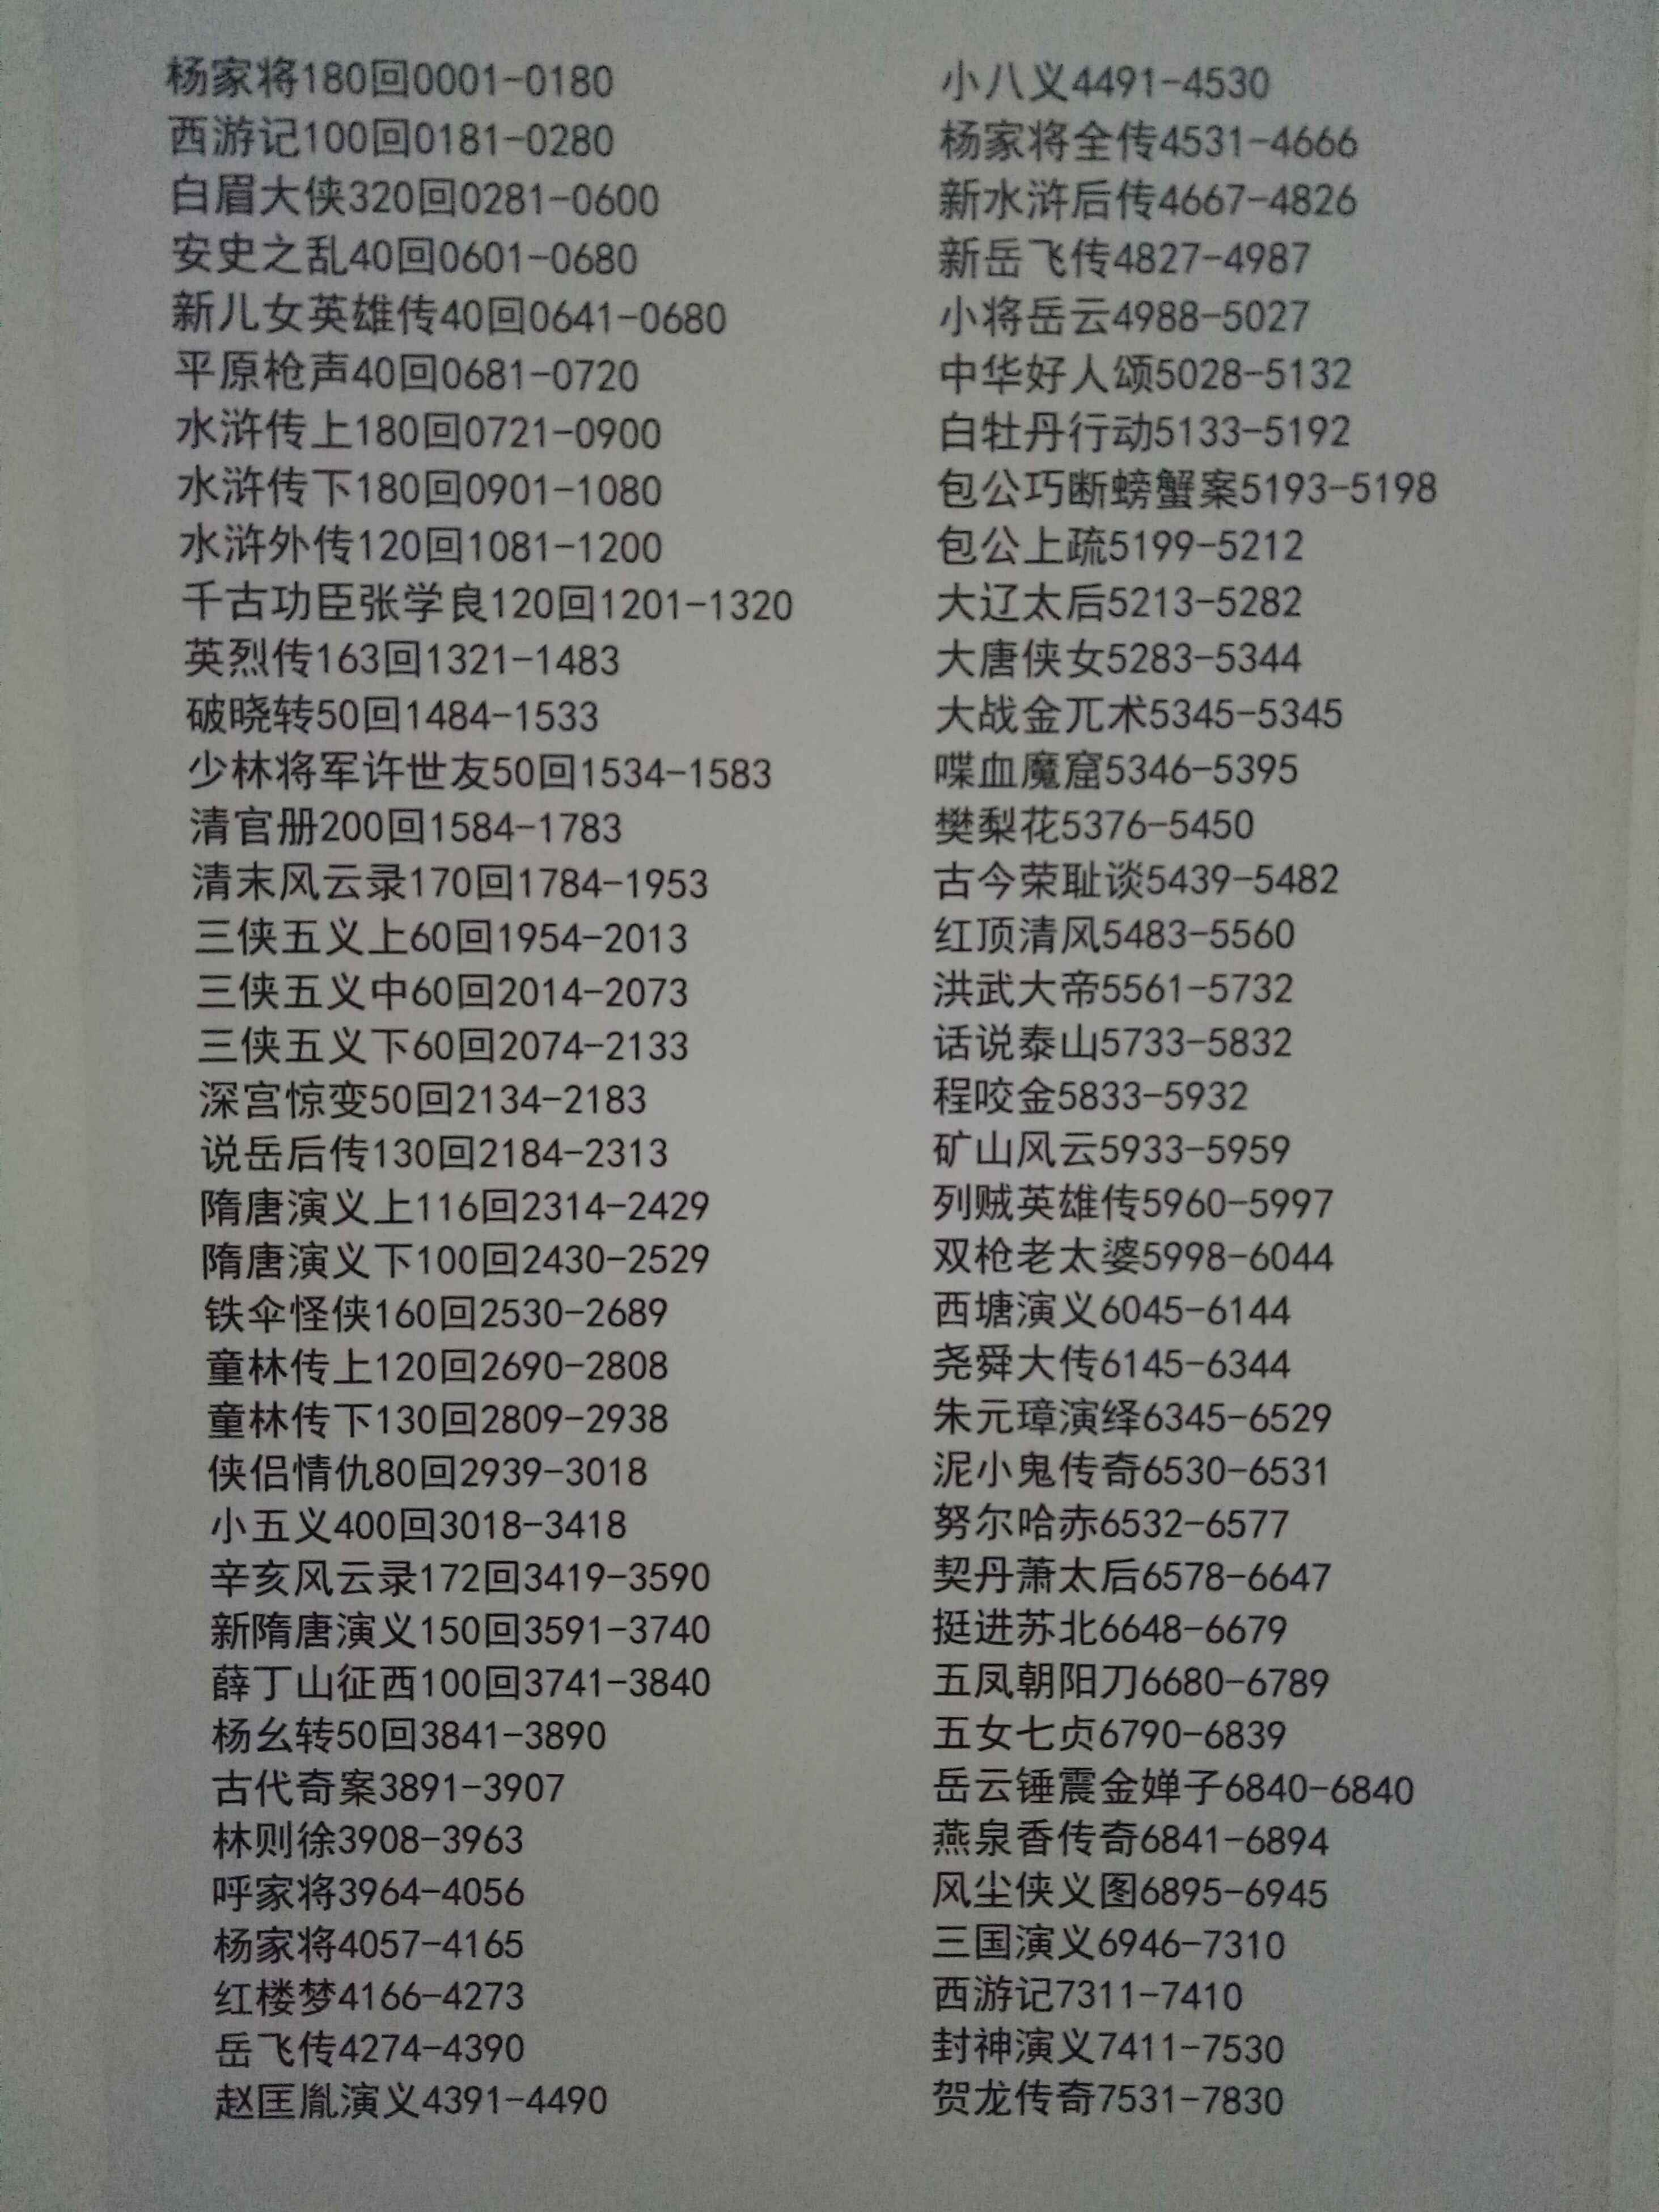 杨家将180回0001-0180
西游记100回0181-0280
白眉大侠320回0281-0600
安史之乱40回0601-0680
新儿女英雄传40回0641-0680
平原枪声40回0681-0720
水浒传上180回0721-0900
水浒传下180回0901-1080
水浒外传120回1081-1200
千古功臣张学良120回1201-1320
英烈传163回1321-1483
破晓转50回1484-1533
少林将军许世友50回1534-1583
清官册200回1584-1783
清末风云录170回1784-1953
三侠五义上60回1954-2013
三侠五义中60回2014-2073
三侠五义下60回2074-2133
深宫惊变50回2134-2183
说岳后传130回2184-2313
隋唐演义上116回2314-2429
隋唐演义下100回2430-2529
铁伞怪侠160回2530-2689
童林传上120回2690-2808
童林传下130回2809-2938
侠侣情仇80回2939-3018
小五义400回3018-3418
辛亥风云录172回3419-3590
新隋唐演义150回3591-3740
薛丁山征西100回3741-3840
杨幺转50回3841-3890
古代奇案3891-3907
林则徐3908-3963
呼家将3964-4056
杨家将4057-4165
红楼梦4166-4273
岳飞传4274-4390
赵匡胤演义4391-4490
小八义4491-4530
杨家将全传4531-4666
新水浒后传4667-4826
新岳飞传4827-4987
小将岳云4988-5027
中华好人颂5028-5132
白牡丹行动5133-5192
包公巧断螃蟹案5193-5198
包公上疏5199-5212
大辽太后5213-5282
大唐侠女5283-5344
大战金兀术5345-5345
喋血魔窟5346-5395
樊梨花5376-5450
古今荣耻谈5439-5482
红顶清风5483-5560
洪武大帝5561-5732
话说泰山5733-5832
程咬金5833-5932
矿山风云5933-5959
列贼英雄传5960-5997
双枪老太婆5998-6044
西塘演义6045-6144
尧舜大传6145-6344
朱元璋演绎6345-6529
泥小鬼传奇6530-6531
努尔哈赤6532-6577
契丹萧太后6578-6647
挺进苏北6648-6679
五凤朝阳刀6680-6789
五女七贞6790-6839
岳云锤震金婵子6840-6840
燕泉香传奇6841-6894
风尘侠义图6895-6945
三国演义6946-7310
西游记7311-7410
封神演义7411-7530
贺龙传奇7531-7830